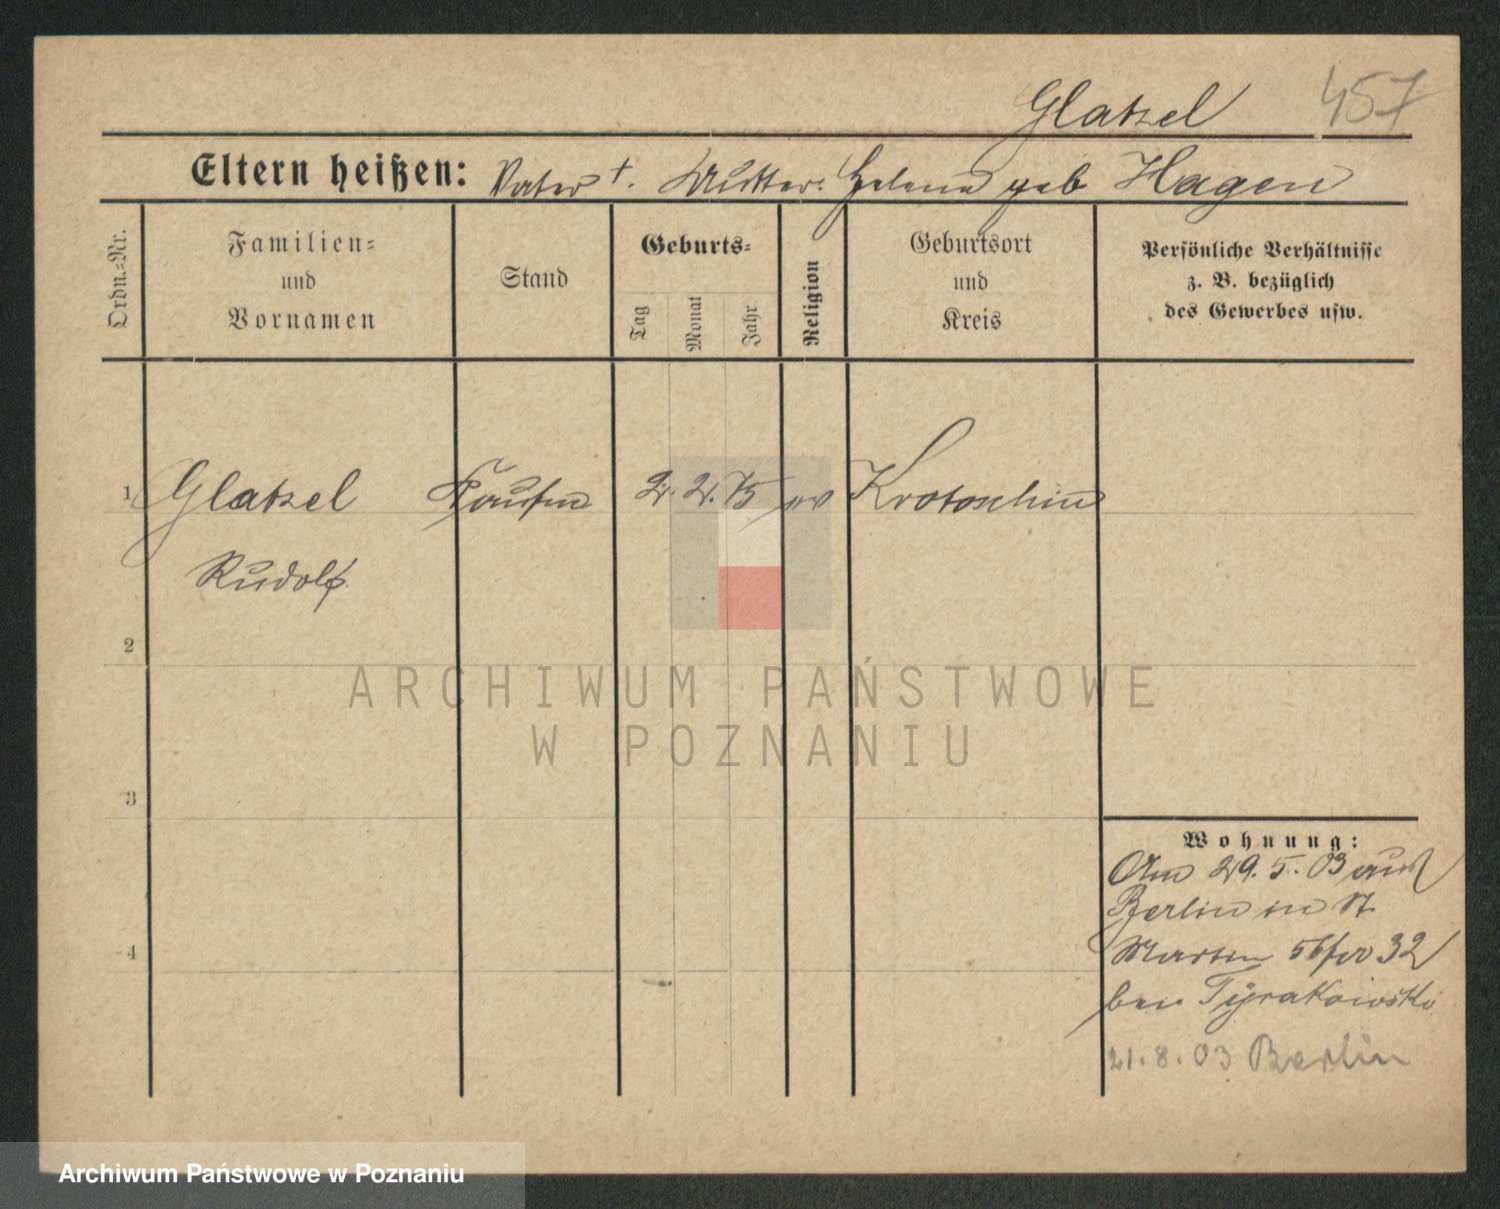 Glatzel 457
Eltern heißen: Vater †. Mutter: Helene geb Hagen
Ordn.=Nr.
Familien=
und
Vornamen
Stand
Geburts=
Tag
Monat
Jahr
Religion
Geburtsort
und
Kreis
Persönliche Verhältnisse
z. B. bezüglich
des Gewerbes usw.
1 Glatzel Kaufm 2. 2. 75 ev Krotoschin
Rudolf
2
3
4
ARCHIWUM PAŃSTWOWE
W POZNANIU
Wohnung:
Am 29.5.03 aus
Berlin in St
Martin 32
bei Tyrakowski
21.8.03 Berlin
Archiwum Państwowe w Poznaniu